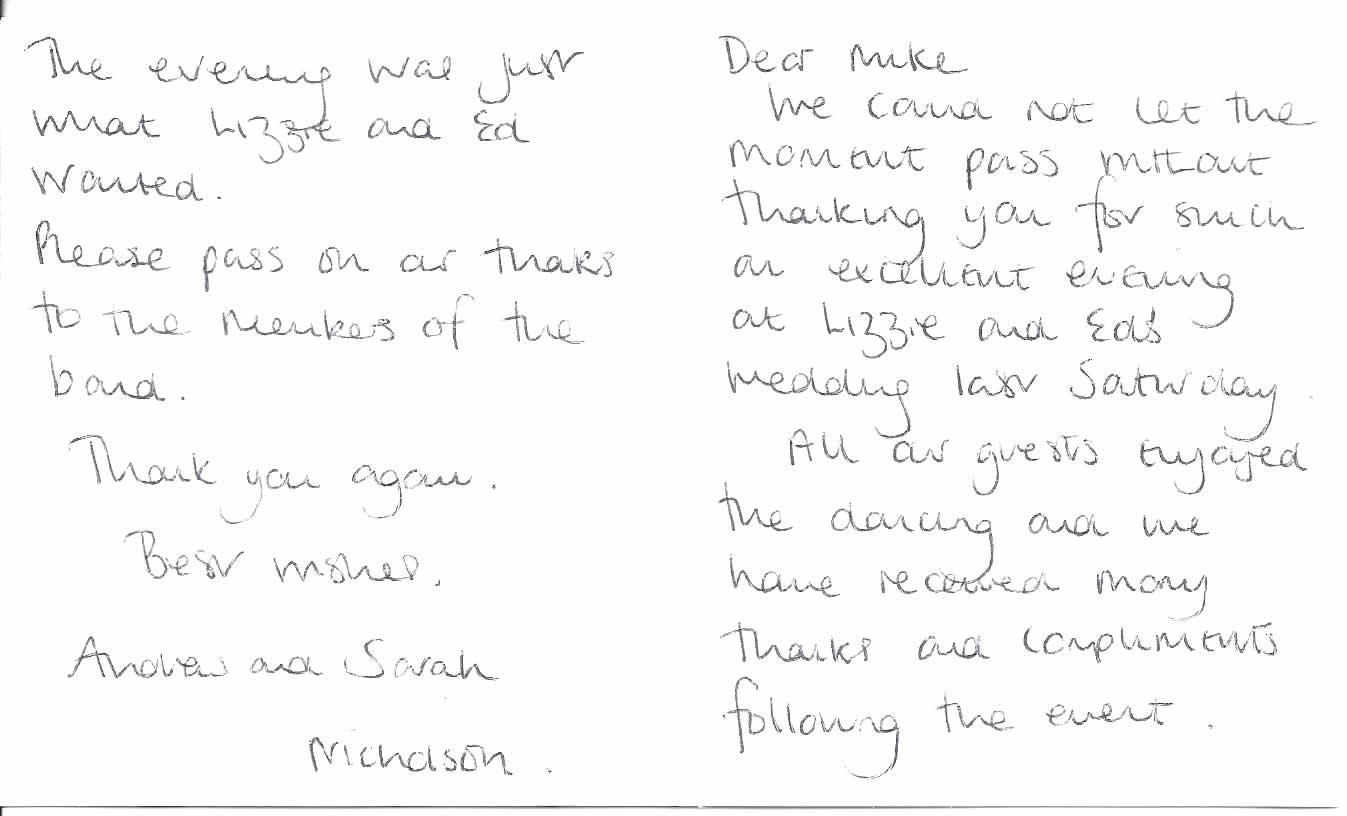 Dear Mike
We could not let the
moment pass without
thanking you for such
an excellent evening
at Lizzie and Ed's
wedding last Saturday.
All our guests enjoyed
the dancing and we
have received many
thanks and compliments
following the event.
The evening was just
what Lizzie and Ed
wanted.
Please pass on our thanks
to the members of the
band.
Thank you again.
Best wishes.
Andrew and Sarah
Nicholson.